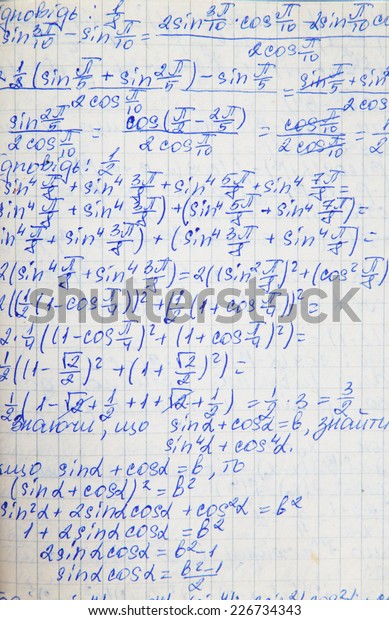 дповідь: 1/8
sin 3π/10 − sin π/10 = (2sin 3π/10 · cos π/10 − 2sin π/10 co / 2cos π/10
2·1/2 (sin π/5 + sin 2π/5) − sin π/5 / 2cos π/10 = sin π/5 + sin / 2co
sin 2π/5 / 2cos π/10 = cos(π/2 − 2π/5) / 2cos π/10 = cos π/10 / 2cos π/10 = 1/2
дповідь: 1/2
sin⁴ π/8 + sin⁴ 3π/8 + sin⁴ 5π/8 + sin⁴ 7π/8 =
sin⁴ π/8 + sin⁴ 3π/8) + (sin⁴ 5π/8 + sin⁴ 7π/8) =
in⁴ π/8 + sin⁴ 3π/8) + (sin⁴ 3π/8 + sin⁴ π/8) =
2(sin⁴ π/8 + sin⁴ 3π/8) = 2((sin² π/8)² + (cos² π/8)
2((1/2(1−cos π/4))² + (1/2(1+cos π/4))²) =
2·1/4((1−cos π/4)² + (1+cos π/4)²) =
1/2((1−√2/2)² + (1+√2/2)²) =
1/2(1−√2+1/2+1+√2+1/2) = 1/2·3 = 3/2
Знаючи, що sinα + cosα = b, знайти
sin⁴α + cos⁴α.
кщо sinα + cosα = b, то
(sinα + cosα)² = b²
sin²α + 2sinαcosα + cos²α = b²
1 + 2sinαcosα = b²
2sinαcosα = b²−1
sinαcosα = b²−1/2
shutterstock
www.shutterstock.com · 226734343